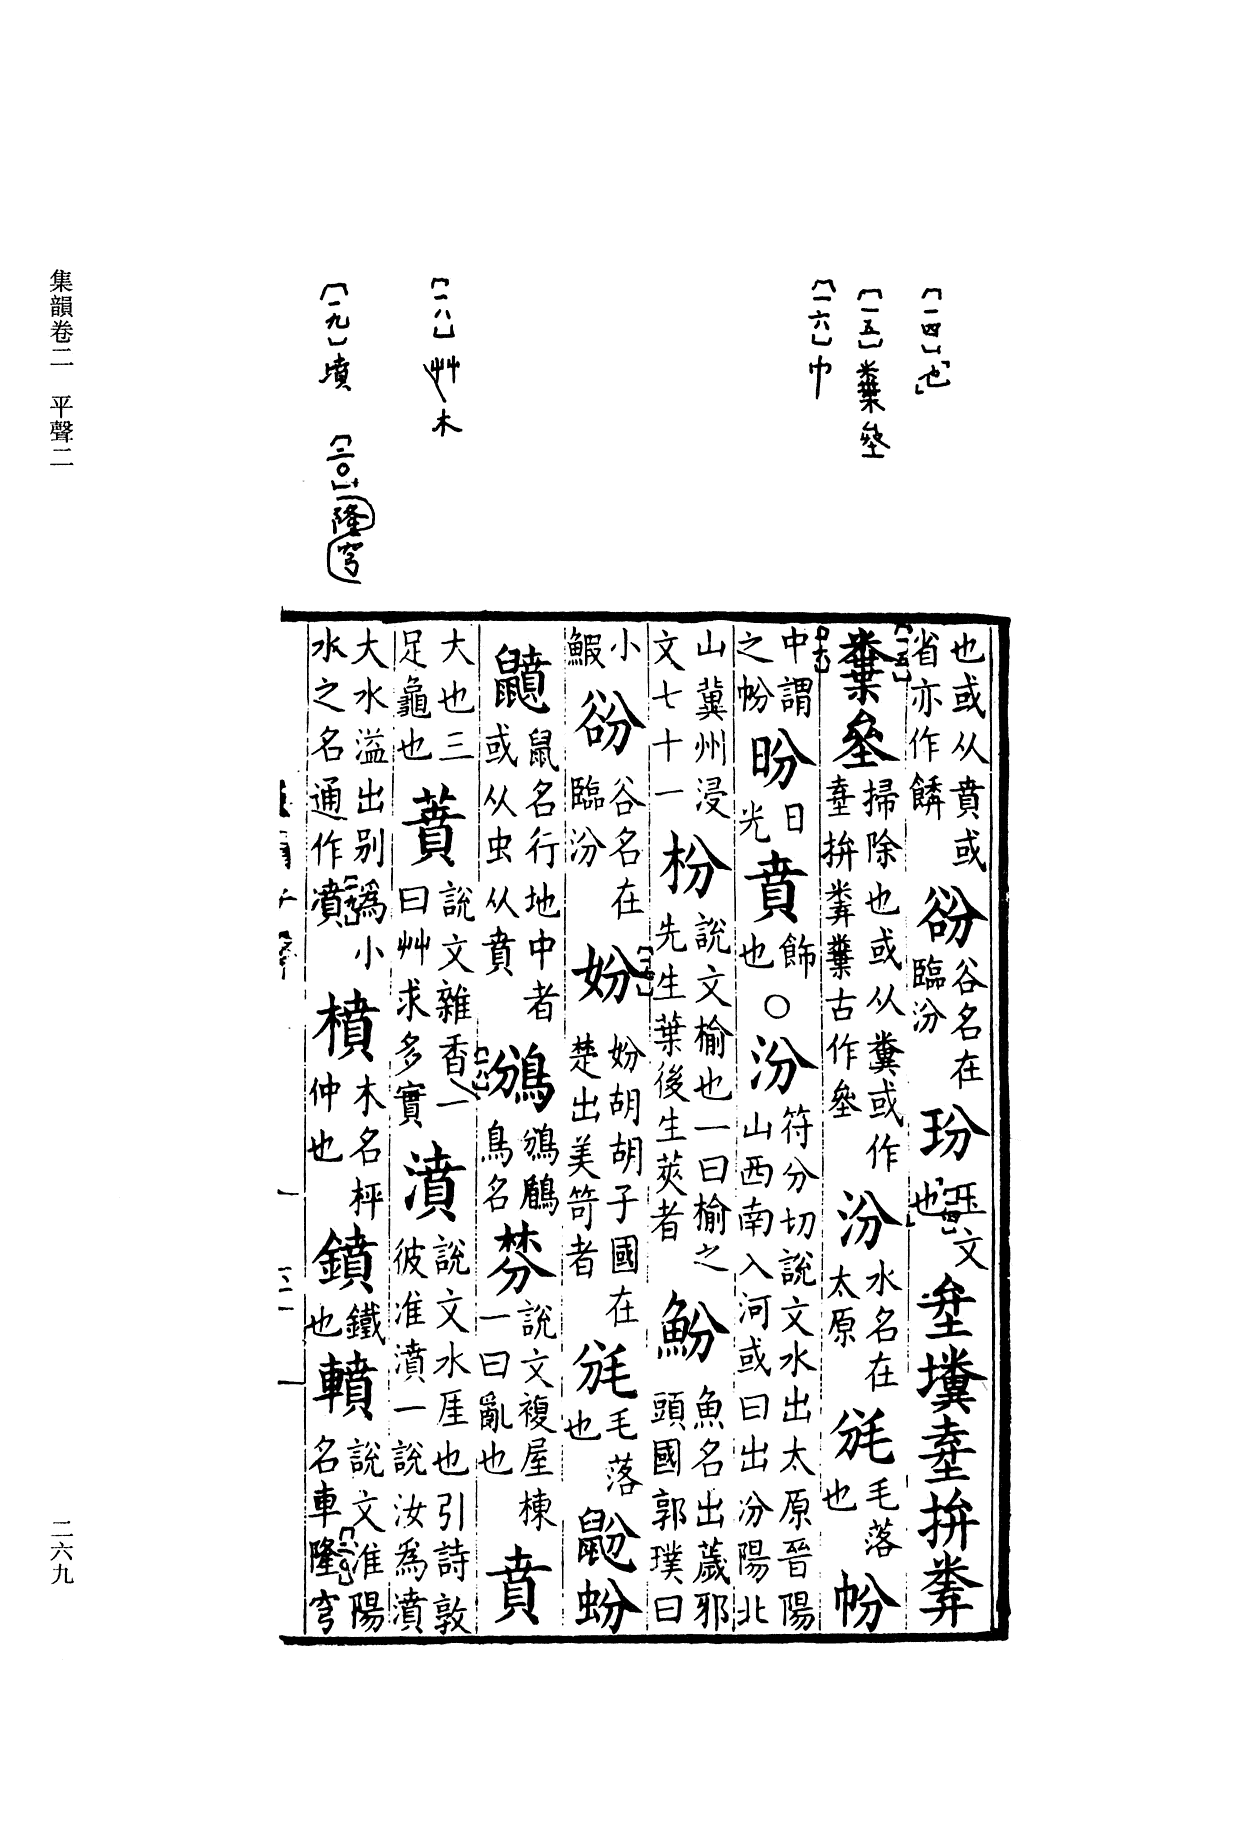 〔一四〕「也」
〔一五〕𡊅
〔一六〕巾
〔一八〕艸木
〔一九〕墳
〔二〇〕隆穹
也或从賁或省亦作餴 㟗谷名在臨汾 玢玉文也 坌㙵𡊄拚
掃除也或从糞或作拚古作 汾水名在太原 㲞毛落也 帉
巾謂之帉 昐日光 賁飾也 ○ 汾符分切說文水出太原晉陽山西南入河或曰出汾陽北
山冀州浸文七十一 枌說文榆也一曰榆之先生葉後生莢者 魵魚名出薉邪頭國郭璞曰
小鰕 谷名在臨汾 妢妢胡胡子國在楚出美笴者 㲞毛落也 鼢蚡
鼠名行地中者或从虫从賁 鳻鳻鶞鳥名 棼說文複屋棟一曰亂也 賁
大也三足龜也 蕡說文雜香一曰艸求多實 濆說文水厓也引詩敦彼淮濆一說汝為濆
大水溢出别為小水之名通作濆 橨木名枰仲也 鐼鐵也 轒說文淮陽名車隆穹
集韻卷二 平聲二
二六九